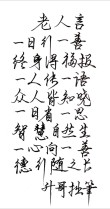 老人言
一日行一善
终身得福报
一人传一语
众人皆知晓
一日看一思
智慧自然生
一心向一善
德行随之长
外哥拙笔